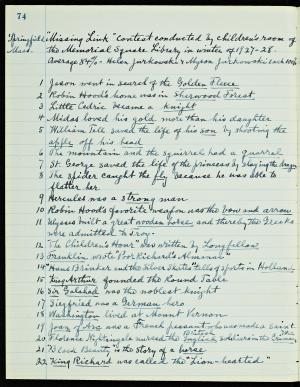 74
Springfield Mass.
"Missing Link" contest conducted by children's room of
the Memorial Square Library in winter of 1927-28.
Average 84% - Helen Jurkowski & Myson Jurkowski each 100%
1 Jason went in search of the Golden Fleece
2 Robin Hood's home was in Sherwood Forest
3 Little Cedric became a knight
4 Midas loved his gold more than his daughter
5 William Tell saved the life of his son by shooting the
apple off his head
6 The mountain and the squirrel had a quarrel
7 St. George saved the life of the princess by slaying the dragon
8 The spider caught the fly because he was able to
flatter her
9 Hercules was a strong man
10 Robin Hood's favorite weapon was the bow and arrow
11 Ulysses built a great wooden horse, and thereby the Greeks
were admitted to Troy.
12 "The Children's Hour" was written by Longfellow
13 Franklin wrote "Poor Richard's Almanac"
14 "Hans Brinker and the Silver Skates" tells of sports in Holland
15 King Arthur founded the Round Table
16 Sir Galahad was the noblest knight
17 Siegfried was a German hero
18 Washington lived at Mount Vernon
19 Joan of Arc was a French peasant who was made a saint
20 Florence Nightingale nursed the English soldiers in the Crimea
21 "Black Beauty" is the story of a horse
22 King Richard was called the "Lion-hearted"